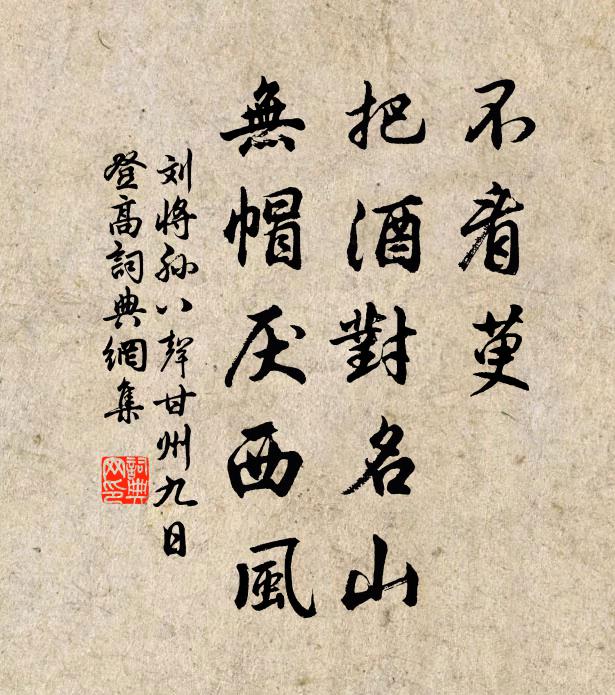 不看萸
把酒對名山
無帽厌西風
刘將孙八聲甘州九日
登高詞典網集
詞典
网印